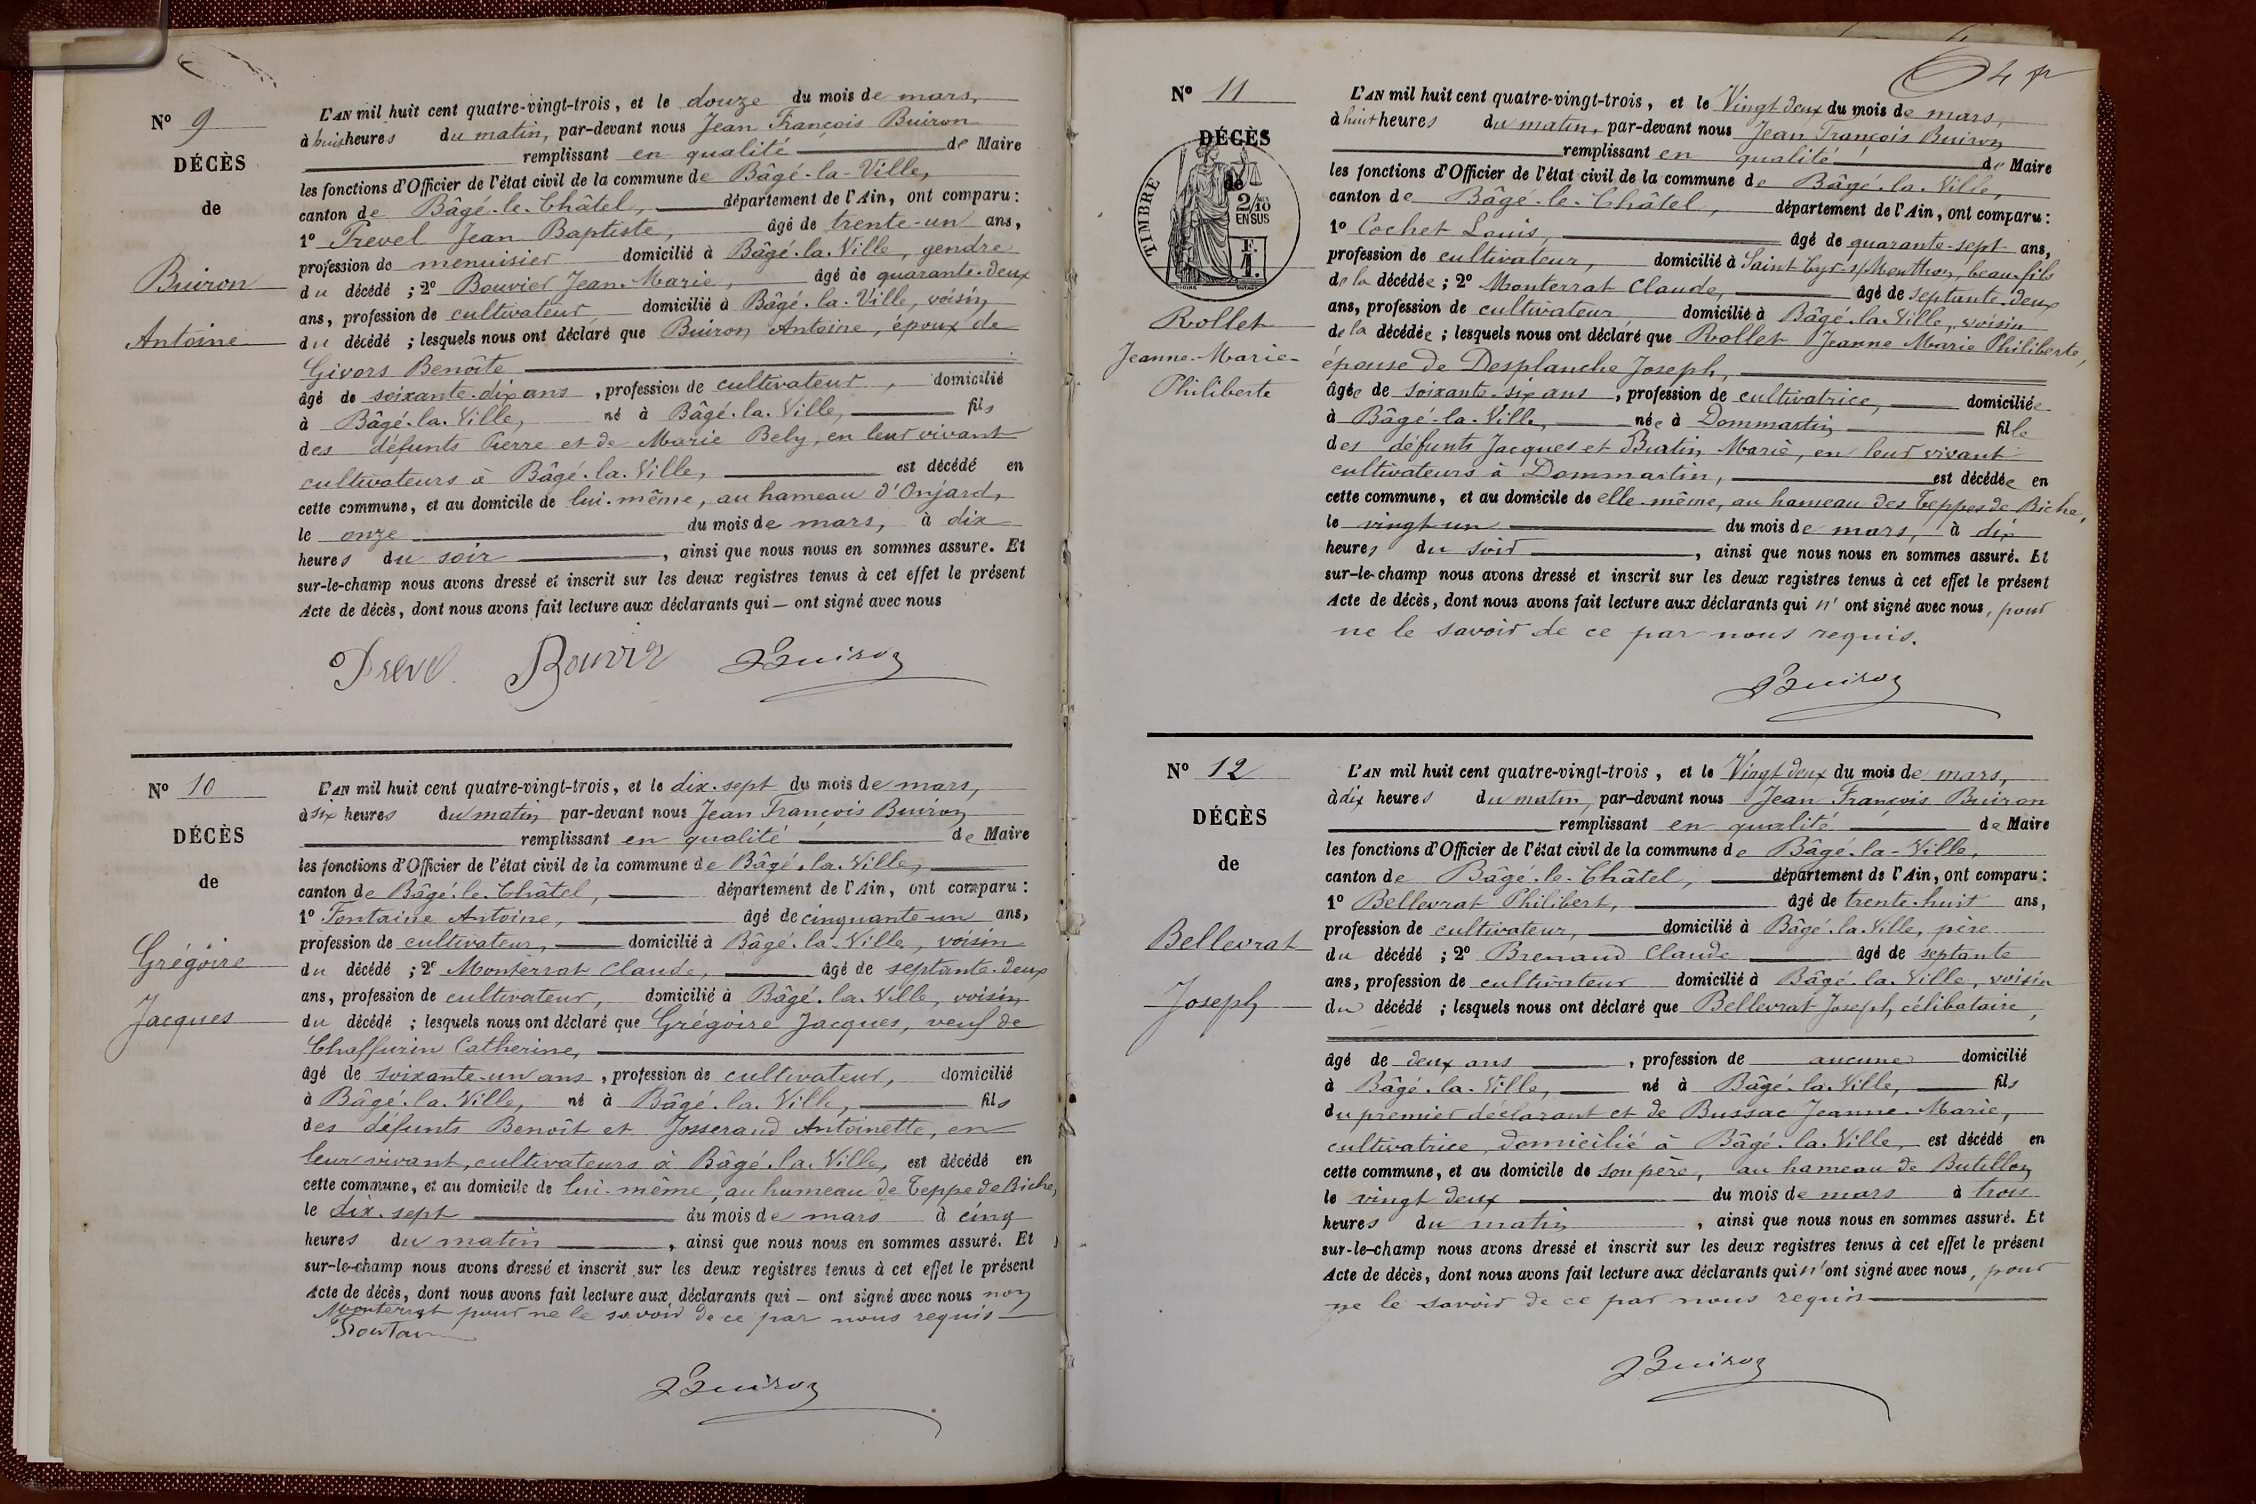 Nº 9
DÉCÈS
de
Buiron
Antoine
L'AN mil huit cent quatre-vingt-trois, et le douze du mois de mars,
à huit heures du matin, par-devant nous Jean François Buiron
remplissant en qualité de Maire
les fonctions d'Officier de l'état civil de la commune de Bâgé-la-Ville,
canton de Bâgé-le-Châtel, département de l'Ain, ont comparu :
1º Prevel Jean Baptiste, âgé de trente-un ans,
profession de menuisier domicilié à Bâgé-la-Ville, gendre
du décédé ; 2º Bouvier Jean-Marie, âgé de quarante-deux
ans, profession de cultivateur domicilié à Bâgé-la-Ville, voisin
du décédé ; lesquels nous ont déclaré que Buiron Antoine, époux de
Givors Benoîte
âgé de soixante-dix ans, profession de cultivateur, domicilié
à Bâgé-la-Ville, né à Bâgé-la-Ville, fils
des défunts Pierre et de Marie Bely, en leur vivant
cultivateurs à Bâgé-la-Ville, est décédé en
cette commune, et au domicile de lui-même, au hameau d'Onjard,
le onze du mois de mars, à dix
heures du soir, ainsi que nous nous en sommes assuré. Et
sur-le-champ nous avons dressé et inscrit sur les deux registres tenus à cet effet le présent
Acte de décès, dont nous avons fait lecture aux déclarants qui — ont signé avec nous
Prevel Bouvier Buiron
Nº 10
DÉCÈS
de
Grégoire
Jacques
L'AN mil huit cent quatre-vingt-trois, et le dix-sept du mois de mars,
à six heures du matin par-devant nous Jean François Buiron
remplissant en qualité de Maire
les fonctions d'Officier de l'état civil de la commune de Bâgé-la-Ville,
canton de Bâgé-le-Châtel, département de l'Ain, ont comparu :
1º Fontaine Antoine, âgé de cinquante-un ans,
profession de cultivateur, domicilié à Bâgé-la-Ville, voisin
du décédé ; 2º Monterrat Claude, âgé de septante-deux
ans, profession de cultivateur, domicilié à Bâgé-la-Ville, voisin
du décédé ; lesquels nous ont déclaré que Grégoire Jacques, veuf de
Chaffurin Catherine,
âgé de soixante-un ans, profession de cultivateur, domicilié
à Bâgé-la-Ville, né à Bâgé-la-Ville, fils
des défunts Benoît et Josserand Antoinette, en
leur vivant, cultivateurs à Bâgé-la-Ville, est décédé en
cette commune, et au domicile de lui-même, au hameau de Teppe de Biche,
le dix-sept du mois de mars à cinq
heures du matin, ainsi que nous nous en sommes assuré. Et
sur-le-champ nous avons dressé et inscrit sur les deux registres tenus à cet effet le présent
Acte de décès, dont nous avons fait lecture aux déclarants qui — ont signé avec nous non
Monterrat pour ne le savoir de ce par nous requis
Buiron
4
Nº 11
DÉCÈS
de
TIMBRE
2/10
EN SUS
F.
1.
Rollet
Jeanne-Marie-
Philiberte
L'AN mil huit cent quatre-vingt-trois, et le Vingt deux du mois de mars,
à huit heures du matin, par-devant nous Jean François Buiron
remplissant en qualité de Maire
les fonctions d'Officier de l'état civil de la commune de Bâgé-la-Ville,
canton de Bâgé-le-Châtel, département de l'Ain, ont comparu :
1º Cochet Louis, âgé de quarante-sept ans,
profession de cultivateur, domicilié à Saint Cyr-s/Menthon, beau-fils
de la décédée ; 2º Monterrat Claude, âgé de septante-deux
ans, profession de cultivateur domicilié à Bâgé-la-Ville, voisin
de la décédée ; lesquels nous ont déclaré que Rollet Jeanne Marie Philiberte,
épouse de Desplanche Joseph,
âgée de soixante-six ans, profession de cultivatrice, domiciliée
à Bâgé-la-Ville, née à Dommartin fille
des défunts Jacques et Burtin Marie, en leur vivant
cultivateurs à Dommartin, est décédée en
cette commune, et au domicile de elle-même, au hameau des Teppes de Biche,
le vingt un du mois de mars, à dix
heures du soir, ainsi que nous nous en sommes assuré. Et
sur-le-champ nous avons dressé et inscrit sur les deux registres tenus à cet effet le présent
Acte de décès, dont nous avons fait lecture aux déclarants qui n'ont signé avec nous, pour
ne le savoir de ce par nous requis.
Buiron
Nº 12
DÉCÈS
de
Bellevrat
Joseph
L'AN mil huit cent quatre-vingt-trois, et le Vingt deux du mois de mars,
à dix heures du matin, par-devant nous Jean François Buiron
remplissant en qualité de Maire
les fonctions d'Officier de l'état civil de la commune de Bâgé-la-Ville,
canton de Bâgé-le-Châtel, département de l'Ain, ont comparu :
1º Bellevrat Philibert, âgé de trente-huit ans,
profession de cultivateur, domicilié à Bâgé-la-Ville, père
du décédé ; 2º Brenaud Claude âgé de septante
ans, profession de cultivateur domicilié à Bâgé-la-Ville, voisin
du décédé ; lesquels nous ont déclaré que Bellevrat Joseph, célibataire,
âgé de deux ans, profession de aucune domicilié
à Bâgé-la-Ville, né à Bâgé-la-Ville, fils
du premier déclarant et de Bussac Jeanne-Marie,
cultivatrice, domicilié à Bâgé-la-Ville, est décédé en
cette commune, et au domicile de son père, au hameau de Butillon
le vingt deux du mois de mars à trois
heures du matin, ainsi que nous nous en sommes assuré. Et
sur-le-champ nous avons dressé et inscrit sur les deux registres tenus à cet effet le présent
Acte de décès, dont nous avons fait lecture aux déclarants qui n'ont signé avec nous, pour
ne le savoir de ce par nous requis
Buiron